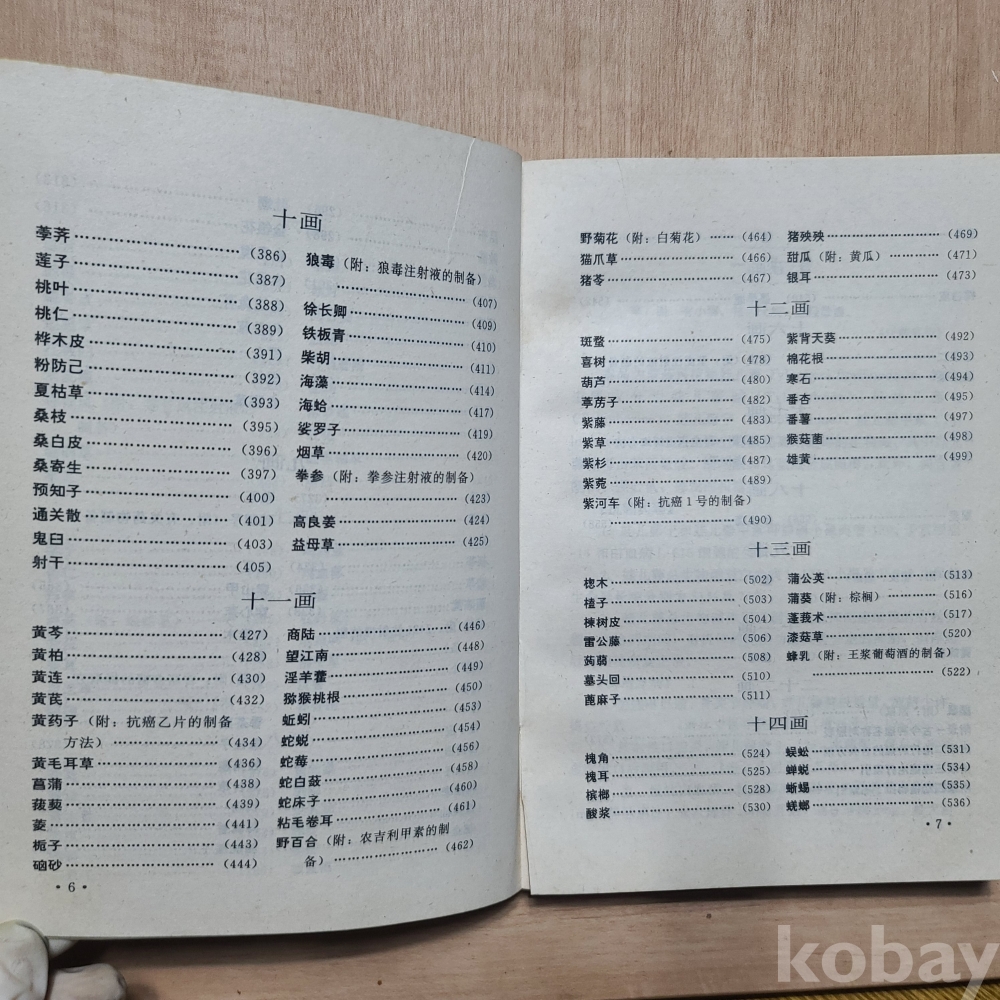 十画
荸荠 (386)
莲子 (387)
桃叶 (388)
桃仁 (389)
桦木皮 (391)
粉防己 (392)
夏枯草 (393)
桑枝 (395)
桑白皮 (396)
桑寄生 (397)
预知子 (400)
通关散 (401)
鬼臼 (403)
射干 (405)
狼毒 (附：狼毒注射液的制备)
(407)
徐长卿 (409)
铁板青 (410)
柴胡 (411)
海藻 (414)
海蛤 (417)
娑罗子 (419)
烟草 (420)
拳参 (附：拳参注射液的制备)
(423)
高良姜 (424)
益母草 (425)
十一画
黄芩 (427)
黄柏 (428)
黄连 (430)
黄芪 (432)
黄药子 (附：抗癌乙片的制备
方法) (434)
黄毛耳草 (436)
菖蒲 (438)
菝葜 (439)
菱 (441)
栀子 (443)
硇砂 (444)
商陆 (446)
望江南 (448)
淫羊藿 (449)
猕猴桃根 (450)
蚯蚓 (453)
蛇蜕 (454)
蛇莓 (456)
蛇白蔹 (458)
蛇床子 (460)
粘毛卷耳 (461)
野百合 (附：农吉利甲素的制
备) (462)
• 6 •
野菊花 (附：白菊花) (464)
猫爪草 (466)
猪苓 (467)
猪殃殃 (469)
甜瓜 (附：黄瓜) (471)
银耳 (473)
十二画
斑蝥 (475)
喜树 (478)
葫芦 (480)
葶苈子 (482)
紫藤 (483)
紫草 (485)
紫杉 (487)
紫菀 (489)
紫河车 (附：抗癌1号的制备)
(490)
紫背天葵 (492)
棉花根 (493)
寒石 (494)
番杏 (495)
番薯 (497)
猴菇菌 (498)
雄黄 (499)
十三画
楤木 (502)
楂子 (503)
楝树皮 (504)
雷公藤 (506)
蒟蒻 (508)
墓头回 (510)
蓖麻子 (511)
蒲公英 (513)
蒲葵 (附：棕榈) (516)
蓬莪术 (517)
漆菇草 (520)
蜂乳 (附：王浆葡萄酒的制备)
(522)
十四画
槐角 (524)
槐耳 (525)
槟榔 (528)
酸浆 (530)
蜈蚣 (531)
蝉蜕 (534)
蜥蜴 (535)
蜣螂 (536)
• 7 •
kobay